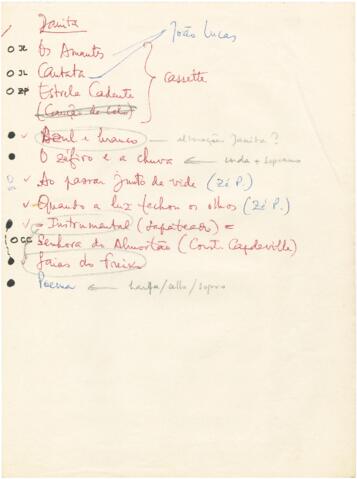 Janita
João Lucas
JL Os Amantes
JL Cantata
cassette
ZP Estrela Cadente
(Canção de
Azul e branco — alteração Janita?
O zéfiro e a chuva ← onda + soprano
Ao passar junto da vide (Zé P.)
Quando a luz fechou os olhos (Zé P.)
= Instrumental (sapateado) =
CC Senhora do Almortão (Const. Capdeville)
Saias do Freixo
Poema ← harpa/cello/sopro